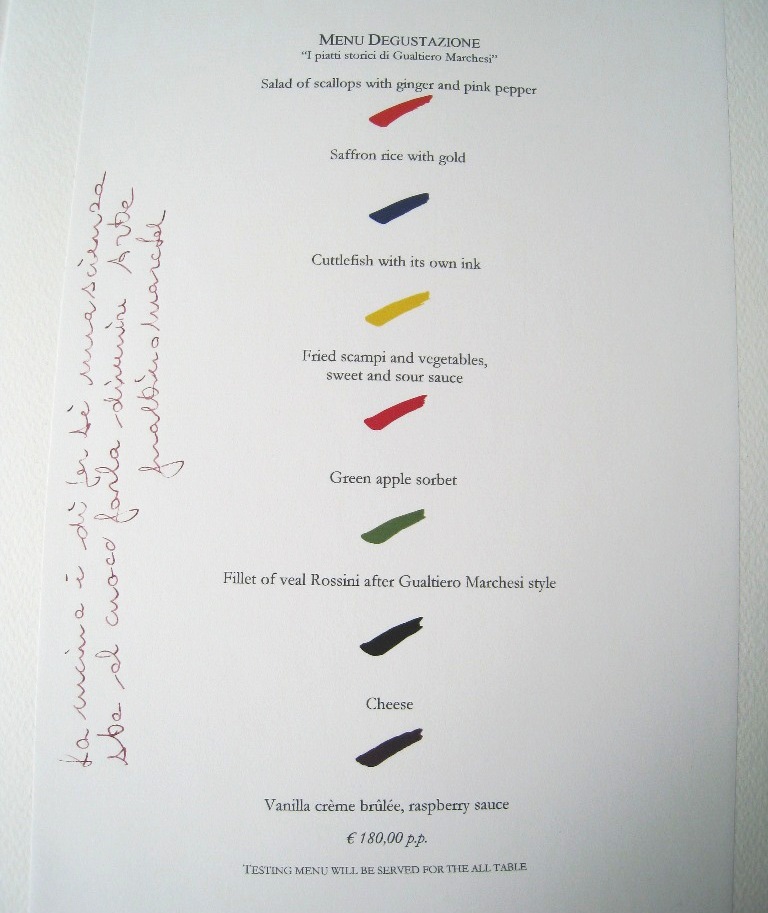 MENU DEGUSTAZIONE
“I piatti storici di Gualtiero Marchesi”
Salad of scallops with ginger and pink pepper
Saffron rice with gold
Cuttlefish with its own ink
Fried scampi and vegetables,
sweet and sour sauce
Green apple sorbet
Fillet of veal Rossini after Gualtiero Marchesi style
Cheese
Vanilla crème brûlée, raspberry sauce
€ 180,00 p.p.
TESTING MENU WILL BE SERVED FOR THE ALL TABLE
La cucina è di per sè una scienza
sta al cuoco farla divenire Arte
Gualtiero Marchesi